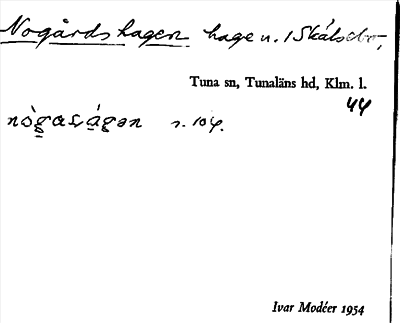 Nogårdshagen hage u. 1 Skålsebo,
Tuna sn, Tunaläns hd, Klm. l.
44
s. 104.
Ivar Modéer 1954